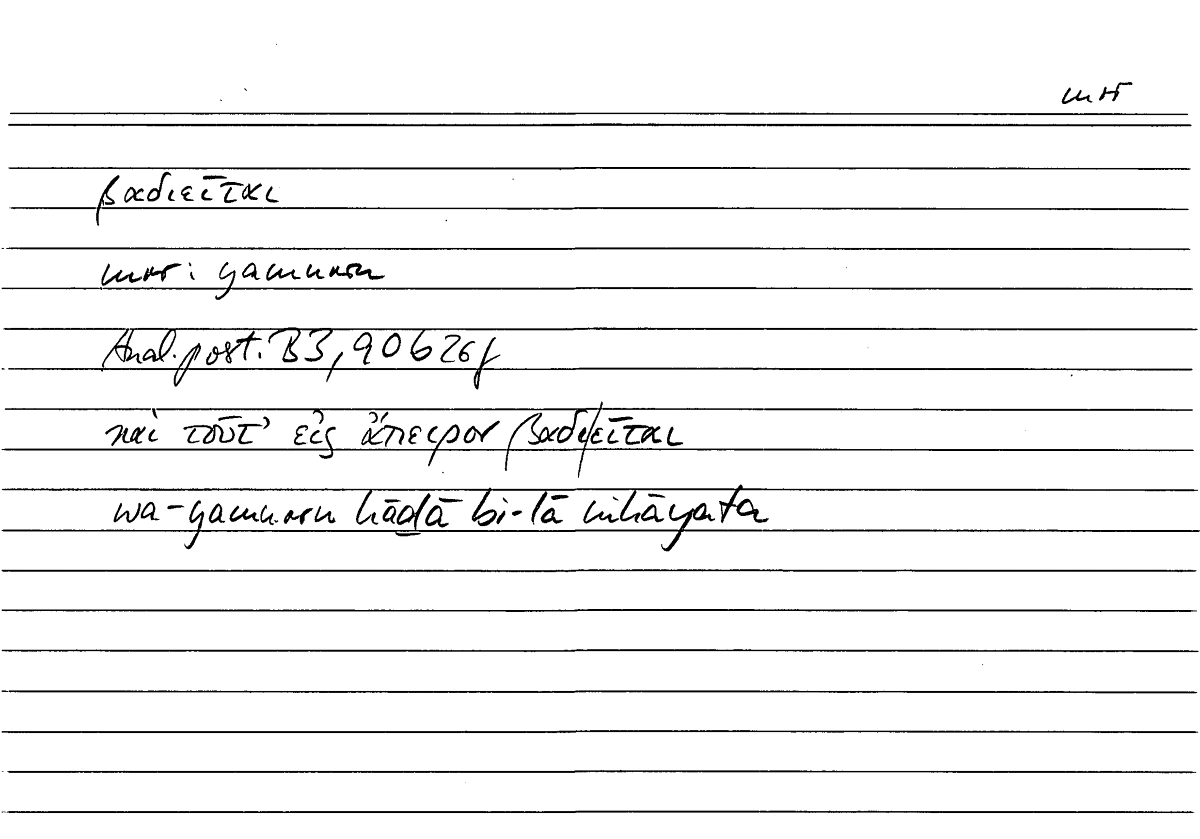 mrr
βαδιεῖται
mrr: yamurru
Anal. post. B3, 90b26f
καὶ τοῦτ' εἰς ἄπειρον βαδιεῖται
wa-yamurru hāḏā bi-lā nihāyata